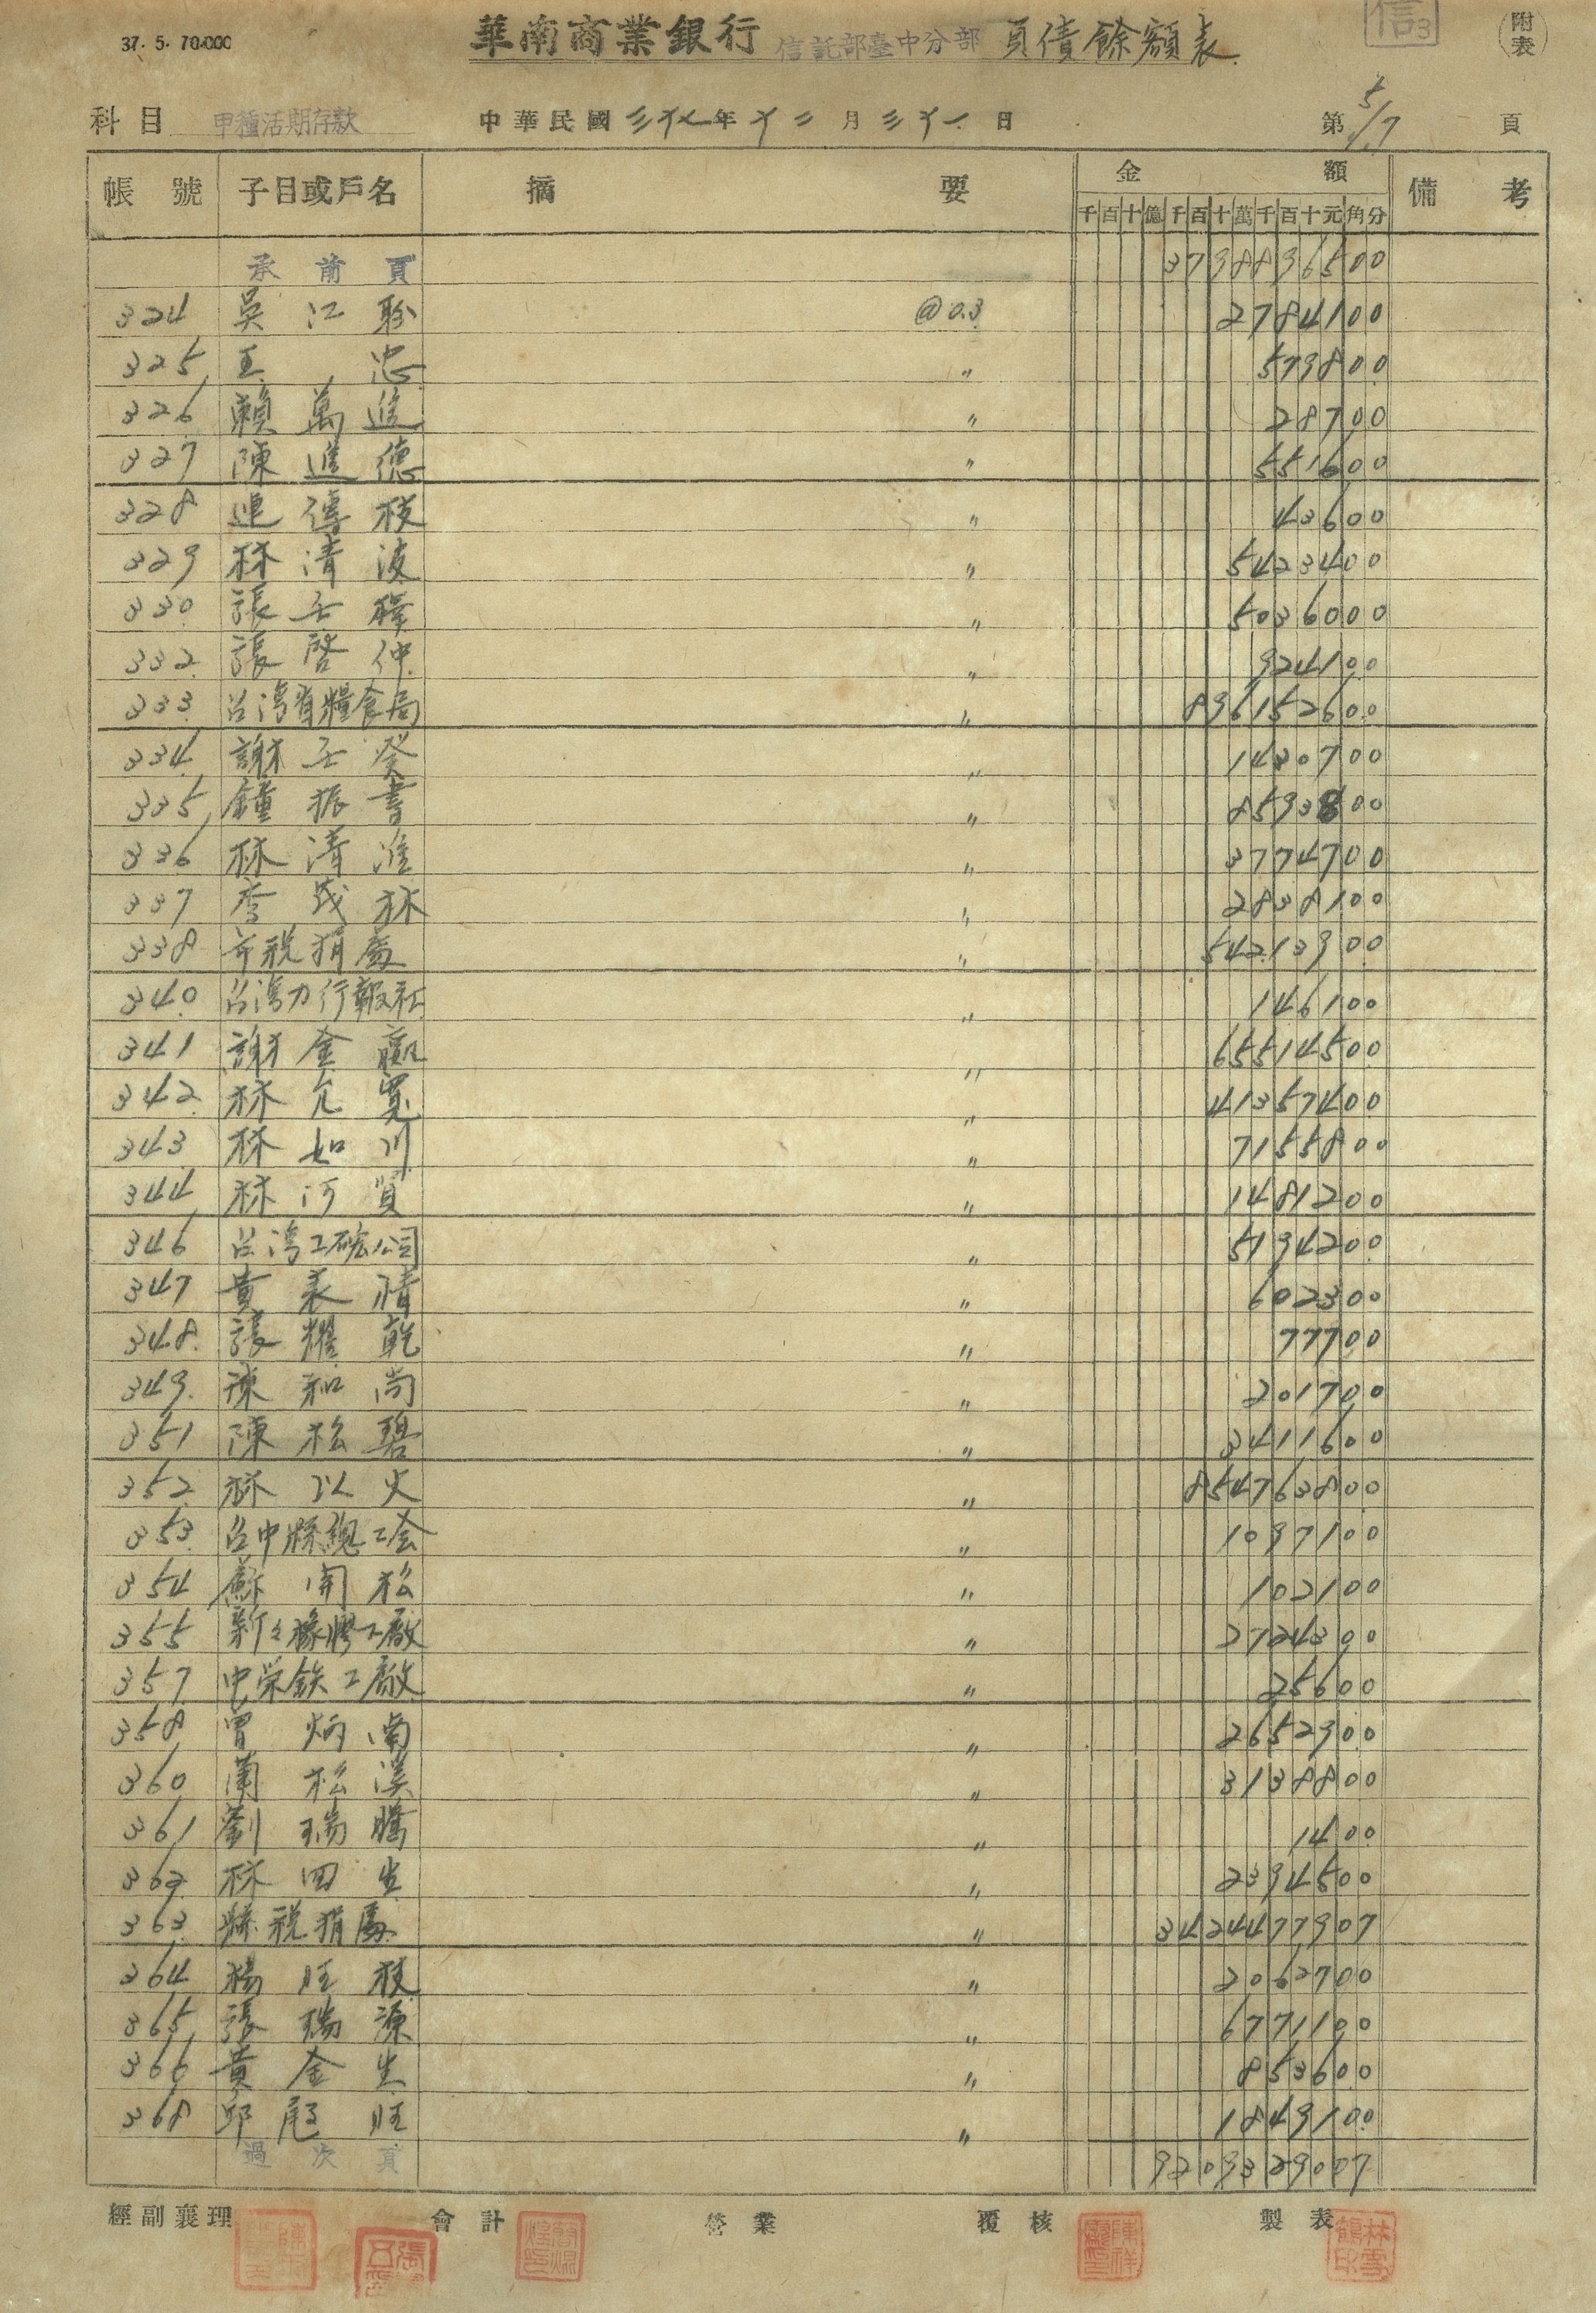 37. 5. 70.000
華南商業銀行 信託部臺中分部 負債餘額表
信3
附表
科目 甲種活期存款 中華民國三十七年十二月三十一日 第5/17頁
帳號 子目或戶名 摘要 金額 備考
千百十億千百十萬千百十元角分
承前頁 3798896500
324 吳江聆 @0.3 2784100
325 王忠 〃 579800
326 賴萬進 〃 28700
327 陳進德 〃 551600
328 連傳枝 〃 43600
329 林清波 〃 5423400
330 張壬 〃 5036000
332 張啓仲 〃 924100
333 台湾省糧食局 〃 896152600
334 謝壬癸 〃 1430700
335 鐘振書 〃 8593800
336 林清准 〃 3774700
337 李茂林 〃 2838100
338 市稅捐處 〃 54213900
340 台湾力行報社 〃 146100
341 謝金 〃 65514500
342 林允寬 〃 41357400
343 林如川 〃 7155800
344 林河賢 〃 1481200
346 台湾工礦公司 〃 5194200
347 黃表清 〃 602300
348 張耀乾 〃 77700
349 陳和尚 〃 201700
351 陳松碧 〃 3411600
352 林以火 〃 854763800
353 台中縣總工会 〃 1097100
354 蘇開松 〃 102100
355 新々橡膠工廠 〃 2724300
357 中榮鉄工廠 〃 25600
358 曾炳南 〃 2652900
360 蘭松溪 〃 3138800
361 劉瑞騰 〃 1400
362 林四生 〃 2394500
363 縣稅捐處 〃 3424477907
364 楊旺枝 〃 2062700
365 張瑞源 〃 6771100
366 黃金生 〃 853600
368 邱尾旺 〃 1849100
過次頁 9209329007
經副襄理 會計 營業 覆核 製表